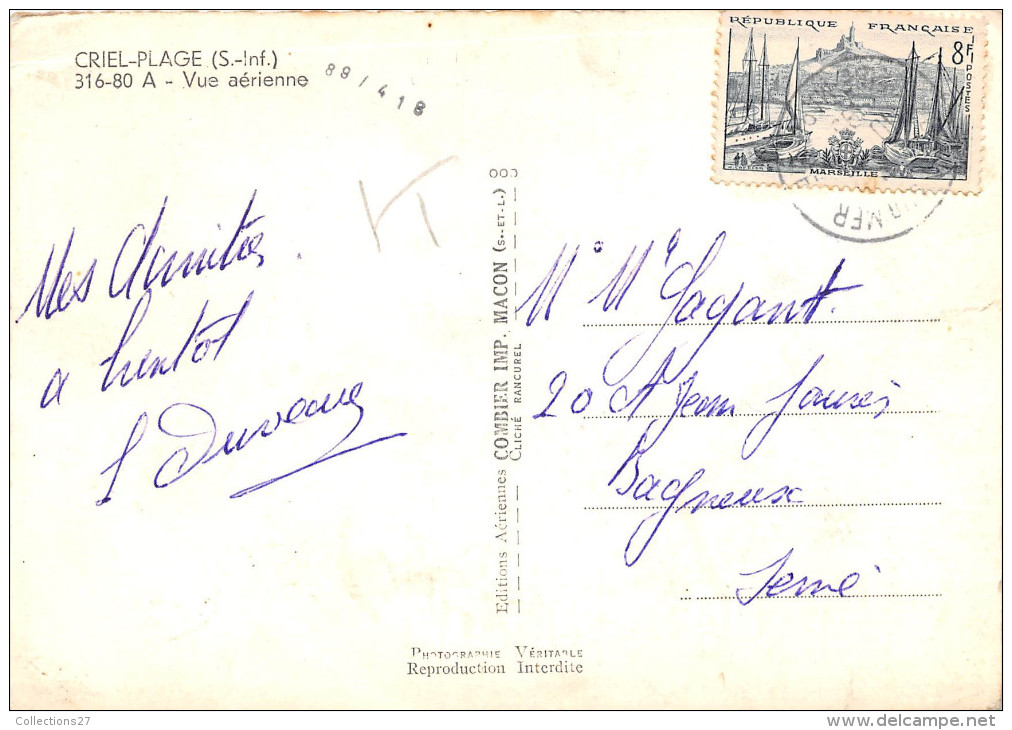 CRIEL-PLAGE (S.-Inf.)
316-80 A - Vue aérienne
88/418
RÉPUBLIQUE FRANÇAISE
8F
POSTES
MARSEILLE
UR MER
Mes Amitiés.
a bientot
Duveau
Editions Aériennes COMBIER IMP. MACON (S.-ET-L.)
CLICHÉ RANCUREL
Mr Me Gagant.
20 A Jean Jaurès
Bagneux
Seine
PHOTOGRAPHIE VÉRITABLE
Reproduction Interdite
Collections27
www.delcampe.net